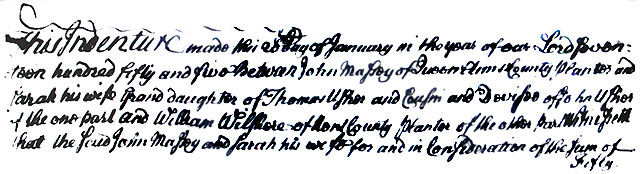 This Indenture made this 28 Day of January in the year of our Lord Seven-
teen hundred fifty and five Between John Massey of Queen Anns County Planter and
Sarah his wife Grand daughter of Thomas Usher and Cousin and Devisee of John Usher
of the one part and William Wilshere of Kent County Planter of the other part Witnesseth
that the said John Massey and Sarah his wife for and in Consideration of the sum of
Fifty